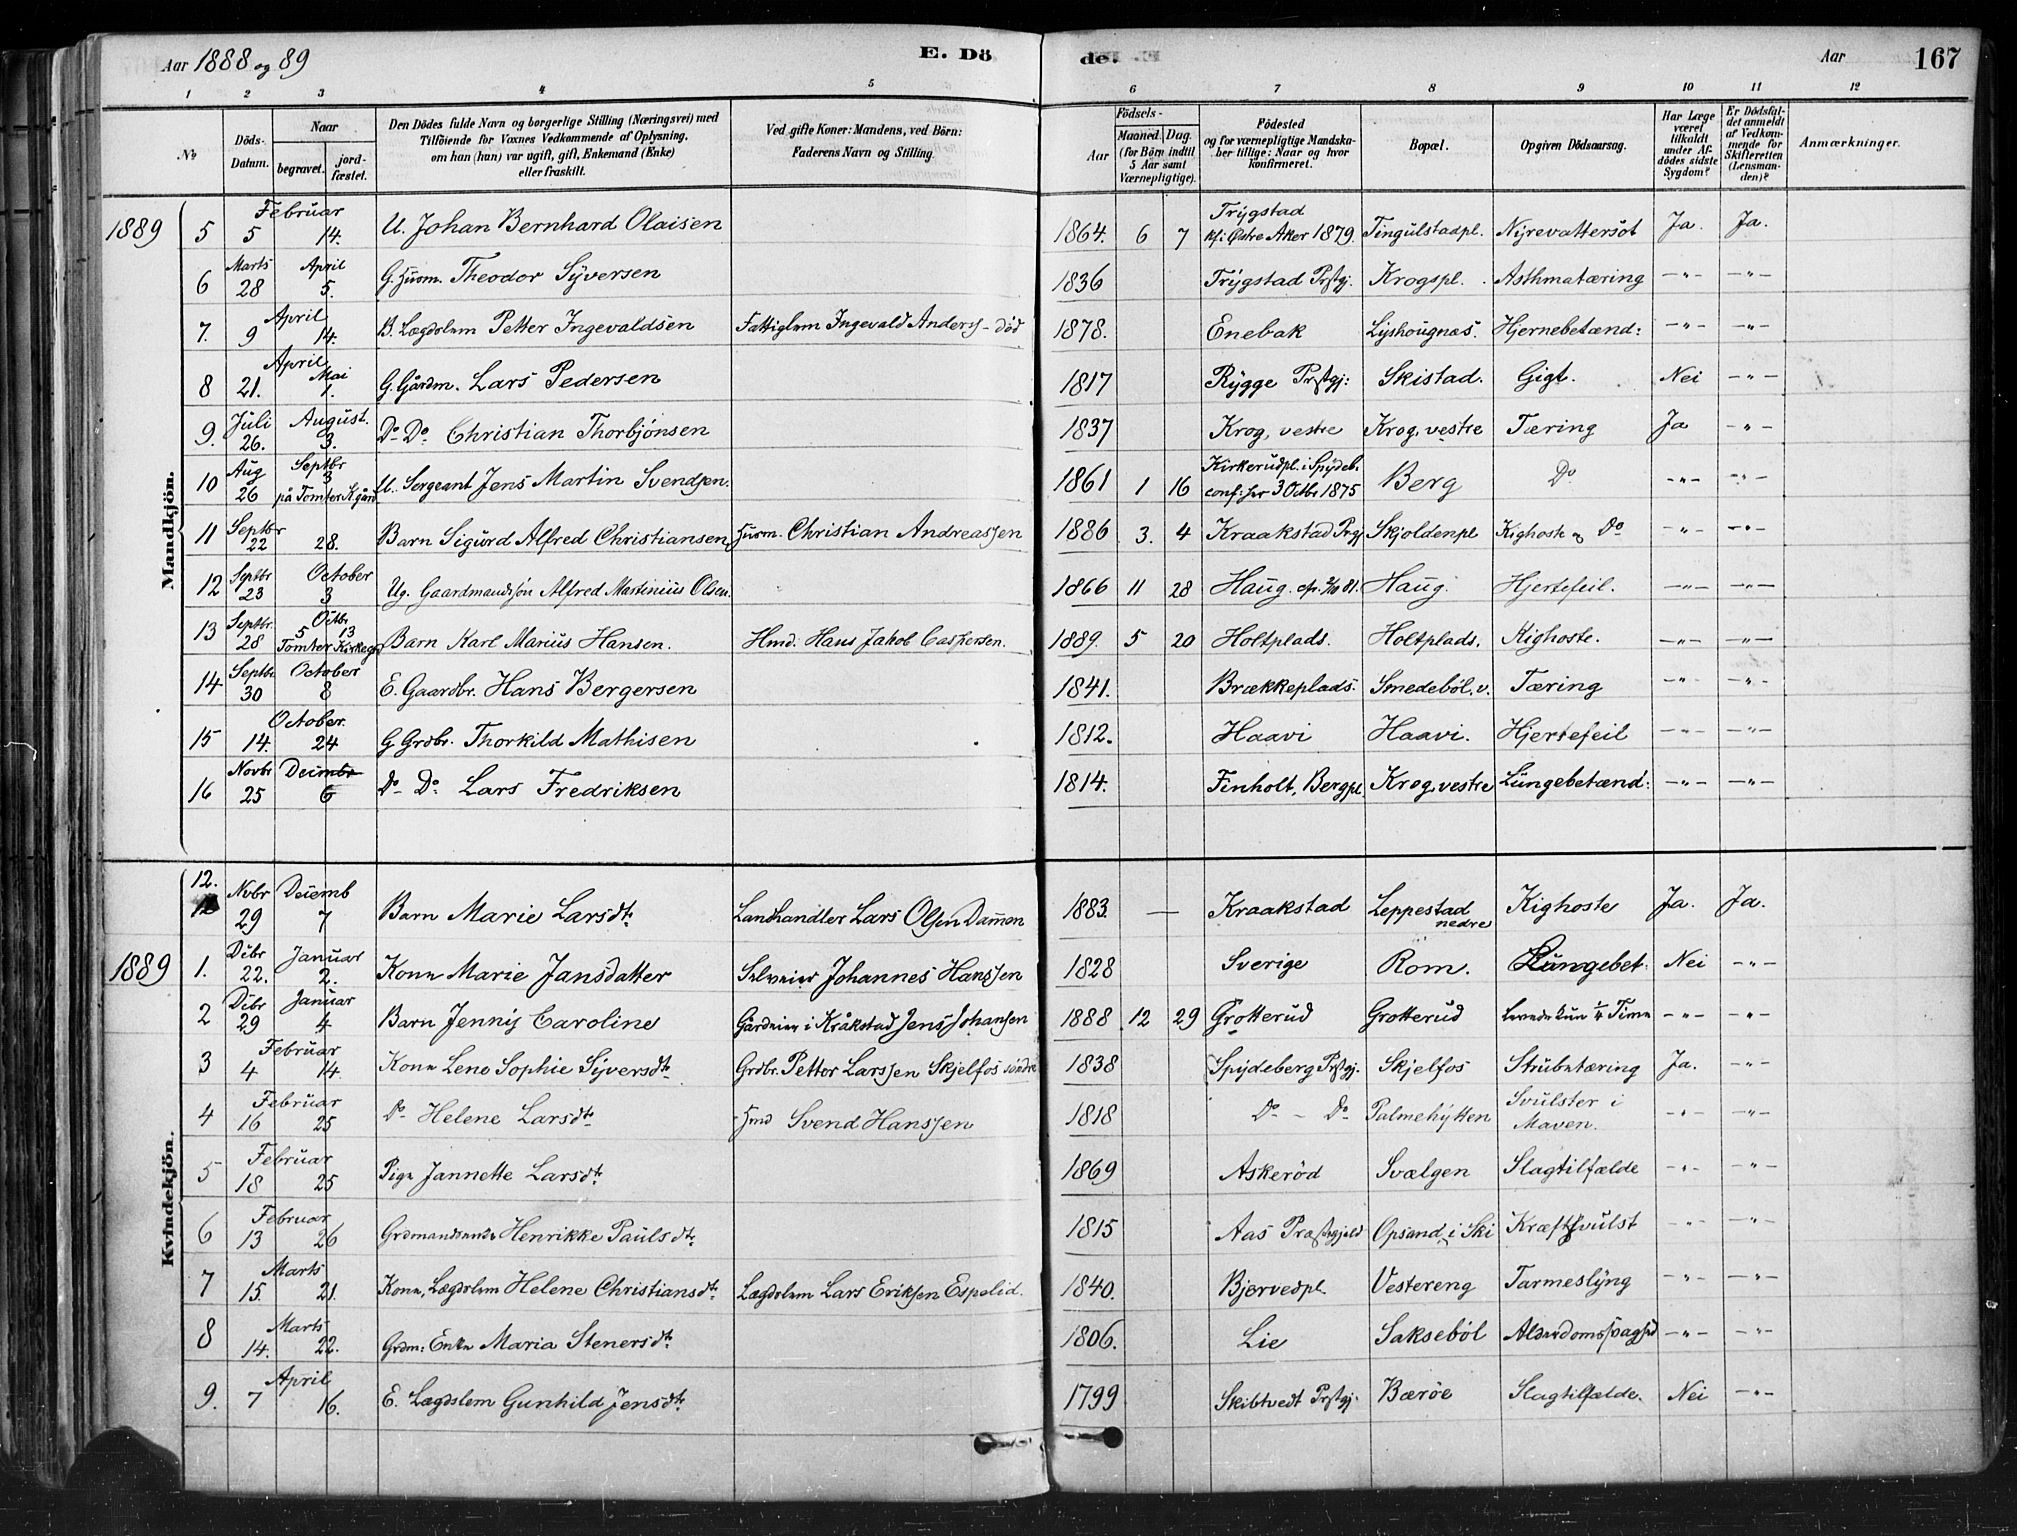 Aar 1888 og 89 E. Dö de. Aar 167
1 2 3 4 5 6 7 8 9 10 11 12
No Döds-Datum. Naar begravet. jord-fæstet. Den Dödes fulde Navn og borgerlige Stilling (Næringsvei) med Tilföiende for Voxnes Vedkommende af Oplysning, om han (hun) var ugift, gift, Enkemand (Enke) eller fraskilt. Ved gifte Koner: Mandens, ved Börn: Faderens Navn og Stilling. Födsels- Aar Maaned Dag. (for Börn indtil 5 Aar samt Værnepligtige). Födested og for værnepligtige Mandskaber tillige: Naar og hvor konfirmeret. Bopæl. Opgiven Dödsaarsag. Har Læge været tilkaldt under Afdödes sidste Sygdom? Er Dödsfaldet anmeldt af Vedkommende for Skifteretten (Lensmanden)? Anmærkninger.
Mandkjön.
1889 5 Februar 5 14. U. Johan Bernhard Olaisen 1864. 6 7 Trygstad kf: i Østre Aker 1879. Tingulstadpl. Nyrevattersot Ja. Ja.
6 Marts 28 April 5. G. Husm. Theodor Syversen 1836 Trygstad Prstgj. Krogspl. Asthmatæring -"- -"-
7. April 9 14. B. Lægdslem Petter Ingevaldsen Fattiglem Ingevald Anderss - död 1878. Enebak Lyshougnæs. Hjernebetænd: -"- -"-
8 April 21. Mai 1. G. Gårdm. Lars Pedersen 1817 Rygge Prstgj: Skistad. Gigt. Nei -"-
9. Juli 26. August. 3. Do Do Christian Thorbjönsen 1837 Krog, vestre Krog, vestre Tæring Ja -"-
10 Aug 26 Septbr 3 på Tomter K.gård U. Sergeant Jens Martin Svendsen. 1861 1 16 Kirkerudpl. i Spydeb. conf: her 3 Octbr 1875 Berg Do -"- -"-
11 Septbr 22 28. Barn Sigurd Alfred Christiansen Husm. Christian Andreassen 1886 3. 4 Kraakstad Prgj Skjoldenpl Kighoste og Do -"- -"-
12 Septbr 23 October 3 Ug. Gaardmandssøn Alfred Martinius Olsen. 1866 11 28 Haug. Haug. Hjertefeil. -"- -"-
13 Septbr. 28 5 Octbr 13 Tomter Kirkeg. Barn Karl Marius Hansen. Hmd. Hans Jakob Caspersen. 1889. 5 20 Holtplads. Holtplads. Kighoste. -"- -"-
14 Septbr. 30 October 8 E. Gaardbr. Hans Bergersen 1841. Brækkeplads. Smedeböl, v. Tæring -"- -"-
15 October. 14. 24 G Grdbr. Thorkild Mathisen 1812. Haavi Haavi. Hjertefeil -"- -"-
16 Novbr 25 Decembr 6 Do Do Lars Fredriksen 1814. Finholt, Bergpl. Krog, vestre Lungebetænd: -"- -"-
Kvindekjön.
12. Nvbr 29 Decemb 7 Barn Marie Larsdtr Landhandler Lars Olsen Dammen 1883. — Kraakstad Leppestad nedre Kighoste Ja. Ja.
1889 1. Dcbr 22. Januar 2. Kone Marie Jansdatter Selveier Johannes Hanssen 1828 Sverige Rom. Lungebet: Nei -"-
2 Dcbr 29 Januar 4 Barn Jenny Caroline Gårdeier i Kråkstad Jens Johansen 1888 12 29 Grotterud Grotterud Levede kun 1/4 Time -"- -"-
3 Februar 4 14. Kone Lene Sophie Syversdtr Grdbr. Petter Larssen Skjelfos söndre 1838 Spydeberg Prstgj. Skjelfos Strubetæring Ja. -"-
4 Februar 16 25 Do Helene Larsdtr Hmd Svend Hanssen 1818 Do - Do Palmehytten Svulster i Maven. -"- -"-
5 Februar 18 25 Pige Jannette Larsdtr 1869 Askeröd Svælgen Slagtilfælde -"- -"-
6 Februar 13 26 Grdmandsenke Henrikke Paulsdtr 1815 Aas Præstegjeld Opsand, i Ski Kræftsvulst -"- -"-
7 Marts 15. 21. Kone, Lægdslem Helene Christiansdtr Lægdslem Lars Eriksen Espelid. 1840. Bjervedpl. Vestereng Tarmeslyng -"- -"-
8 Marts 14. 22. Grdm: Enke Maria Stenersdtr 1806. Lie Sakseböl Alderdomssvaghed -"- -"-
9. April 7 16. E. Lægdslem Gunhild Jensdtr 1799 Skibtvedt Prstgj. Bæröe Slagtilfælde. Nei -"-